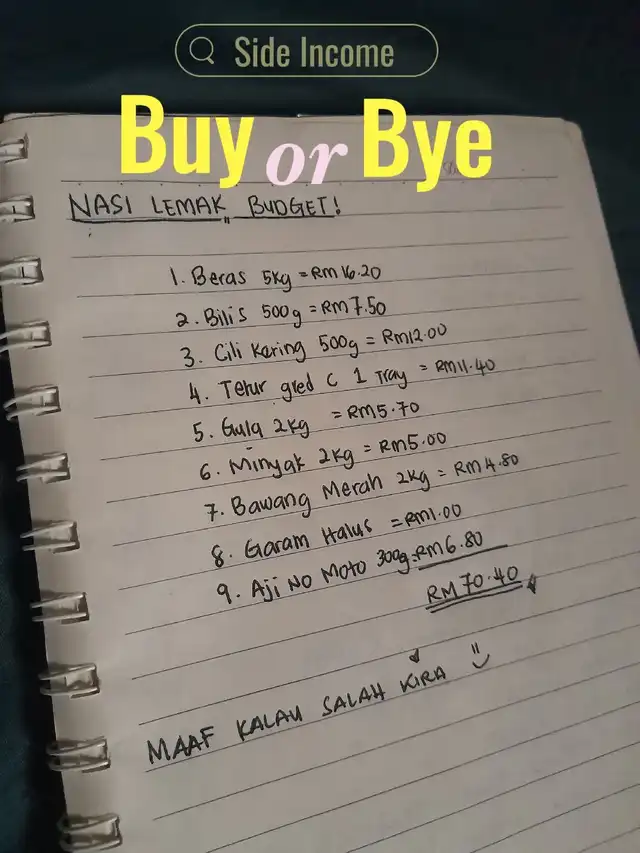 Side Income
Buy or Bye
NASI LEMAK BUDGET!
1. Beras 5kg = RM16.20
2. Bilis 500g = RM7.50
3. Cili Kering 500g = RM12.00
4. Telur gred C 1 Tray = RM11.40
5. Gula 2kg = RM5.70
6. Minyak 2kg = RM5.00
7. Bawang Merah 2kg = RM4.80
8. Garam Halus = RM1.00
9. Aji No Moto 300g = RM6.80
RM70.40
MAAF KALAU SALAH KIRA